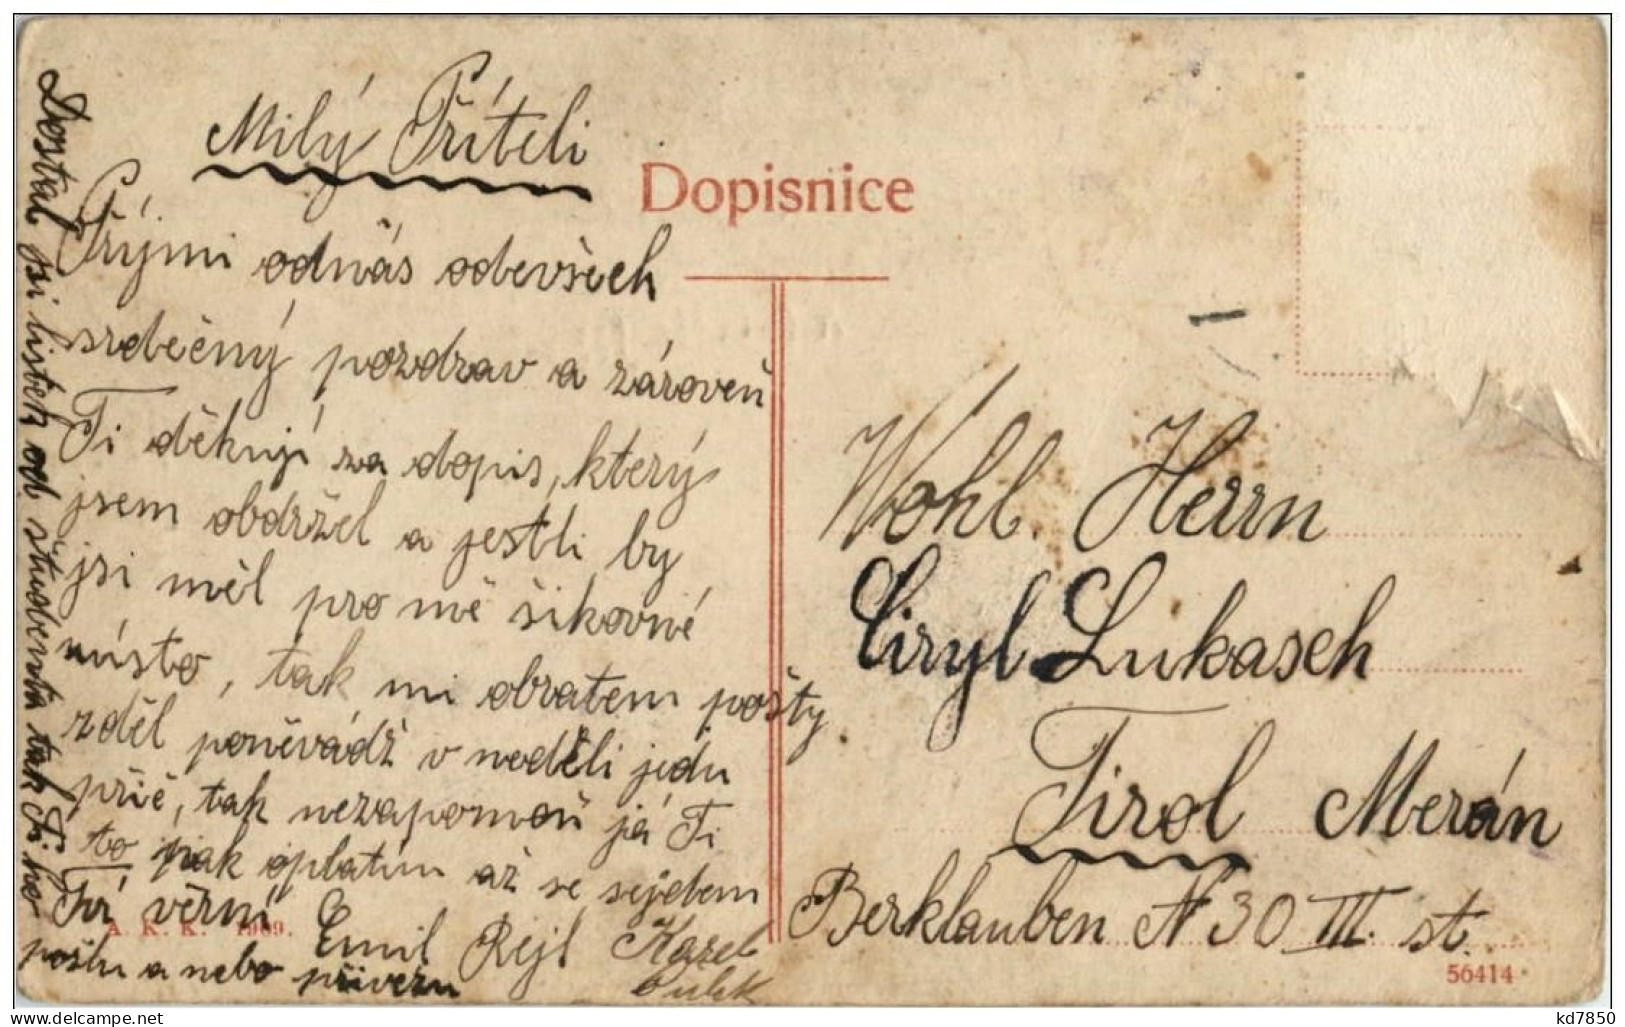 Milý Příteli
Dopisnice
Príjmi odnás odevšech
srdečný pozdrav a zároveň
Ti děkuji za dopis, který
jsem obdržel a jestli by
jsi měl pro mě šikovné
místo, tak mi obratem pošty
zděl poněvádž v neděli jedu
přič, tak nezapomoň já Ti
to pak oplatím až se sejdem
Tvi věrní Emil Rejl Karel
A. K. K. 1909.
Dostal jsi lístek od študenta tak Ti ho
pošlu a nebo přivezu
Wohl. Herrn
Ciryl Lukasch
Tirol Merán
Berklauben N 30 III. st.
56414
www.delcampe.net
kd7850